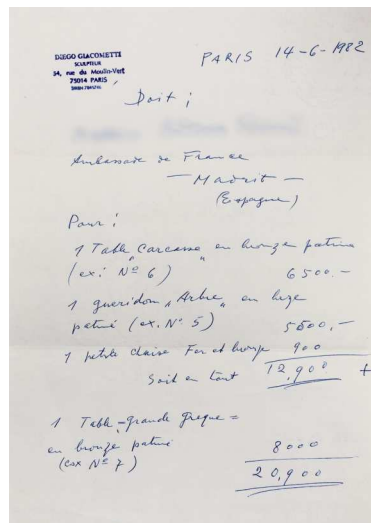 DIEGO GIACOMETTI
SCULPTEUR
34, rue du Moulin-Vert
75014 PARIS
PARIS 14-6-1982
Doit ;
Ambassade de France
— Madrit —
(Espagne)
Pour :
1 Table „Carcasse„ en bronze patiné
(ex: Nº 6) 6500,—
1 gueridon „Arbre„ en
patiné (ex. Nº 5) 5500,—
1 petite chaise Fer et bronze 900
Soit en tout 12,900 +
1 Table „grande greque =
en bronze patiné 8000
(ex Nº 7) 20,900